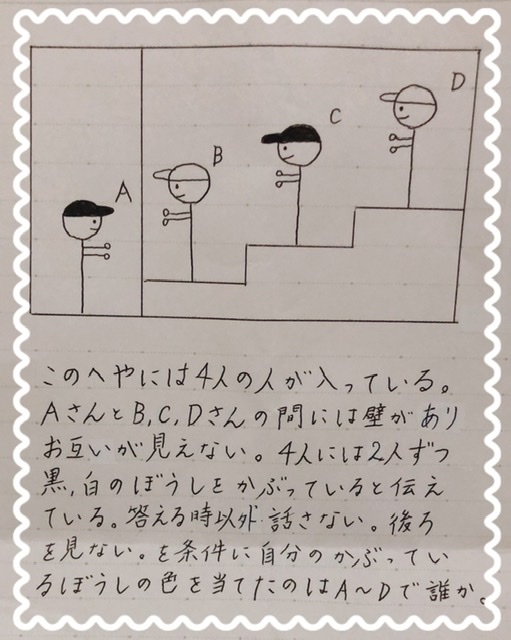 A
B
C
D
このへやには4人の人が入っている。
AさんとB,C,Dさんの間には壁があり
お互いが見えない。4人には2人ずつ
黒,白のぼうしをかぶっていると伝え
ている。答える時以外話さない。後ろ
を見ない。を条件に自分のかぶってい
るぼうしの色を当てたのはA～Dで誰か。